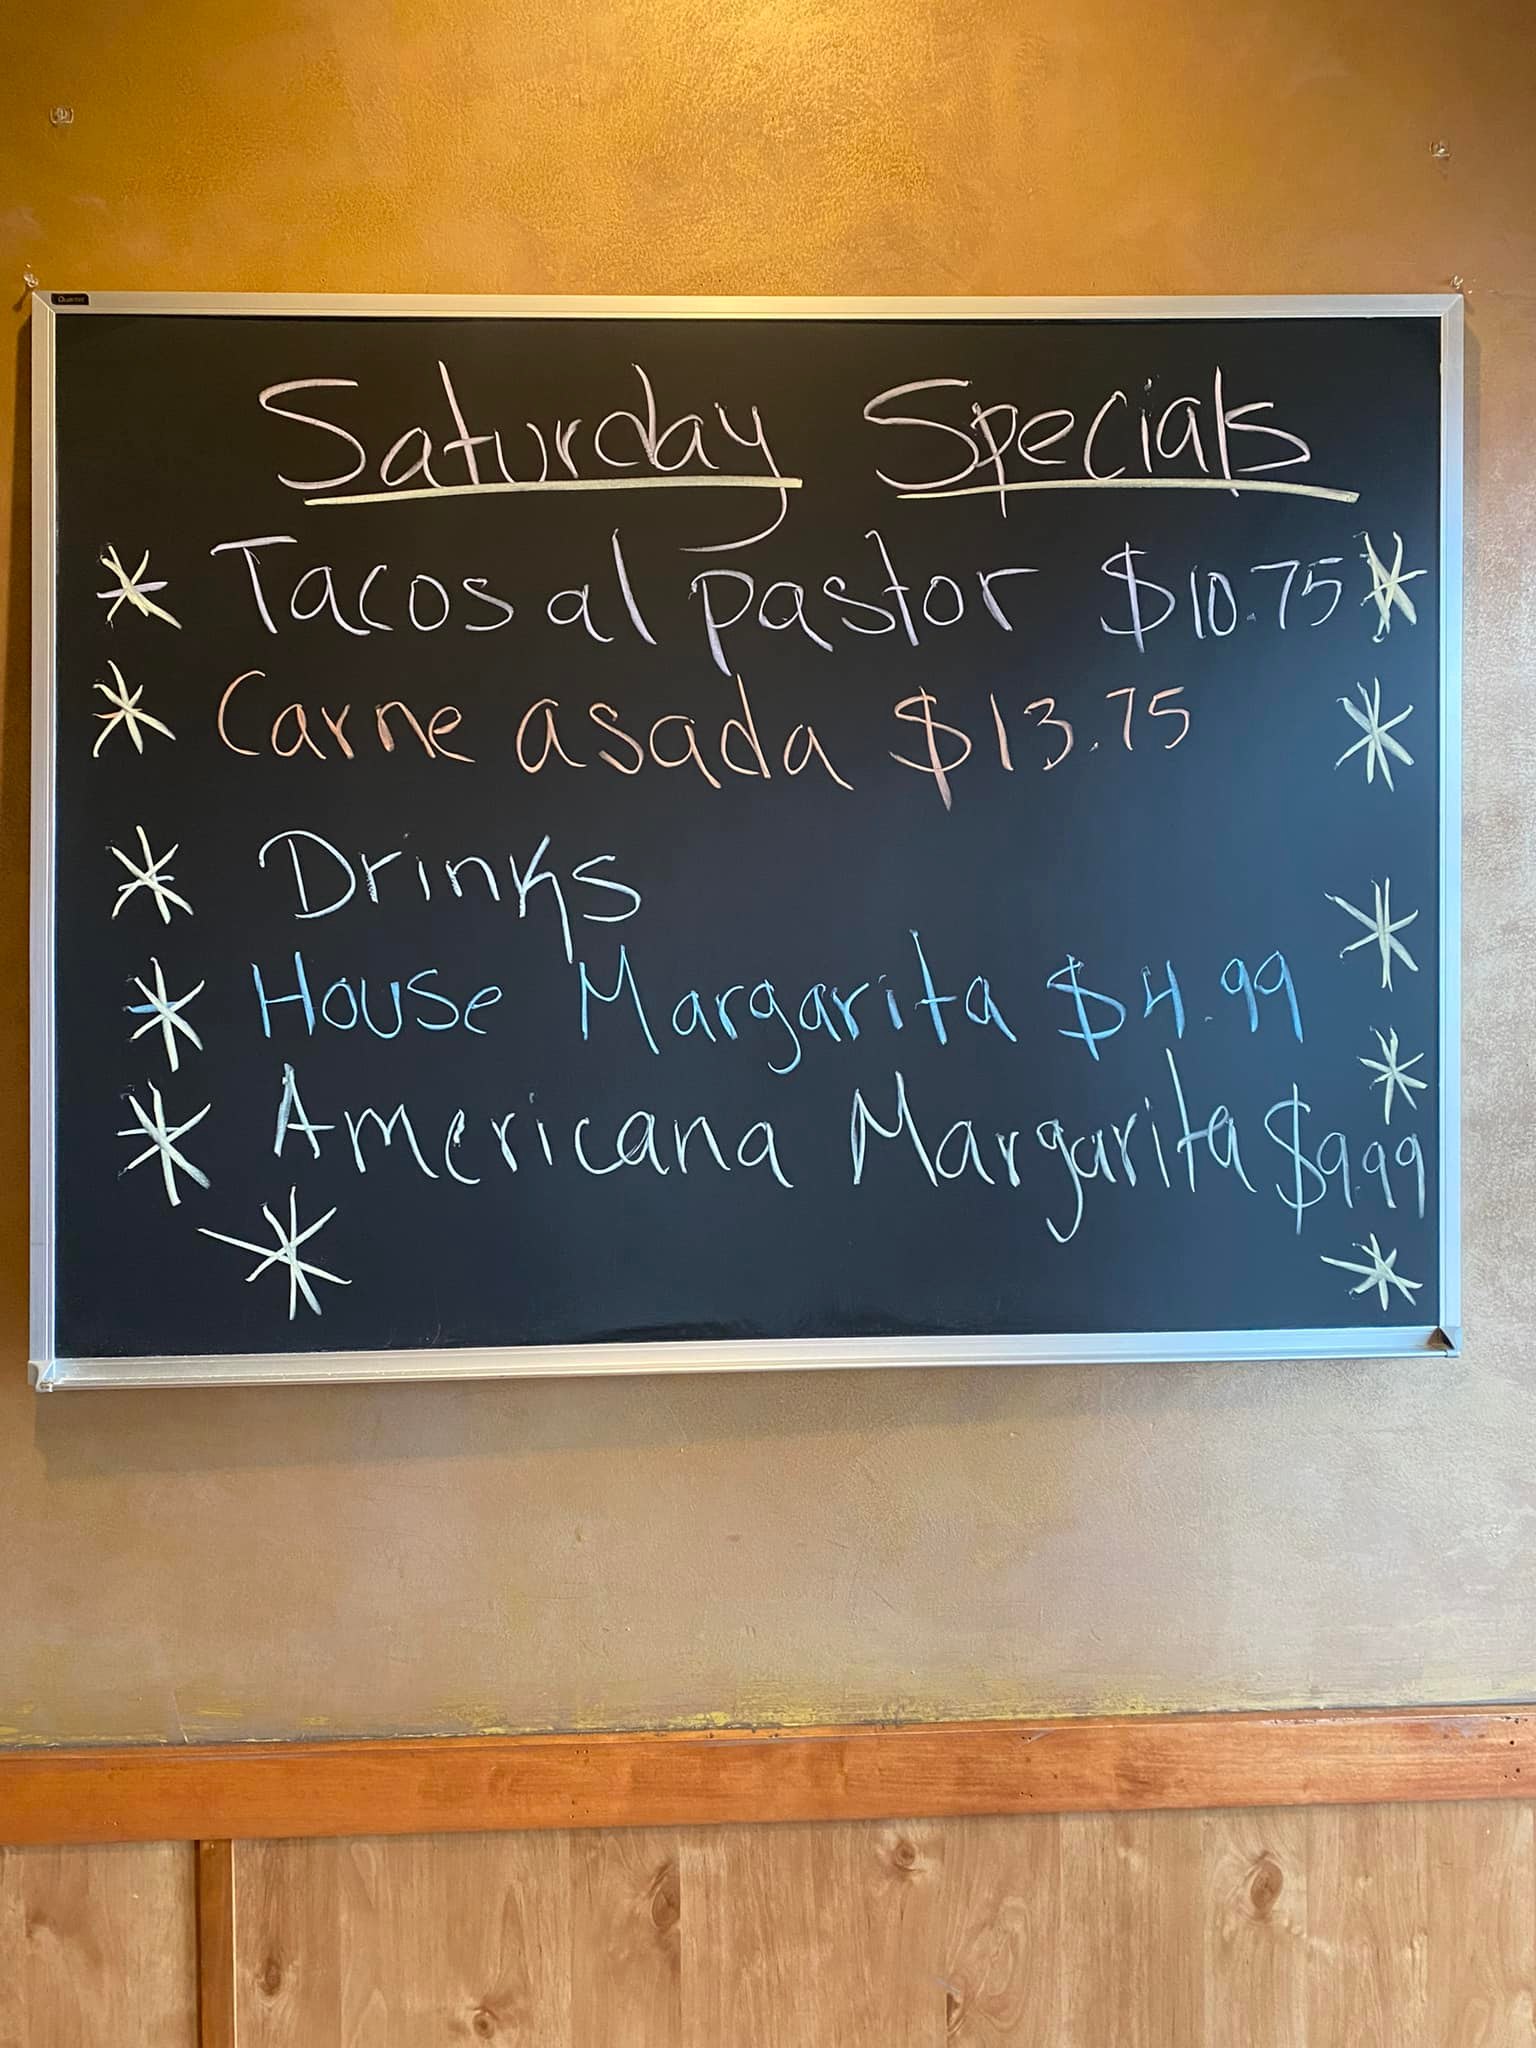 Quartet
Saturday Specials
* Tacos al pastor $10.75 *
* Carne asada $13.75 *
* Drinks *
* House Margarita $4.99 *
* Americana Margarita $9.99
* *